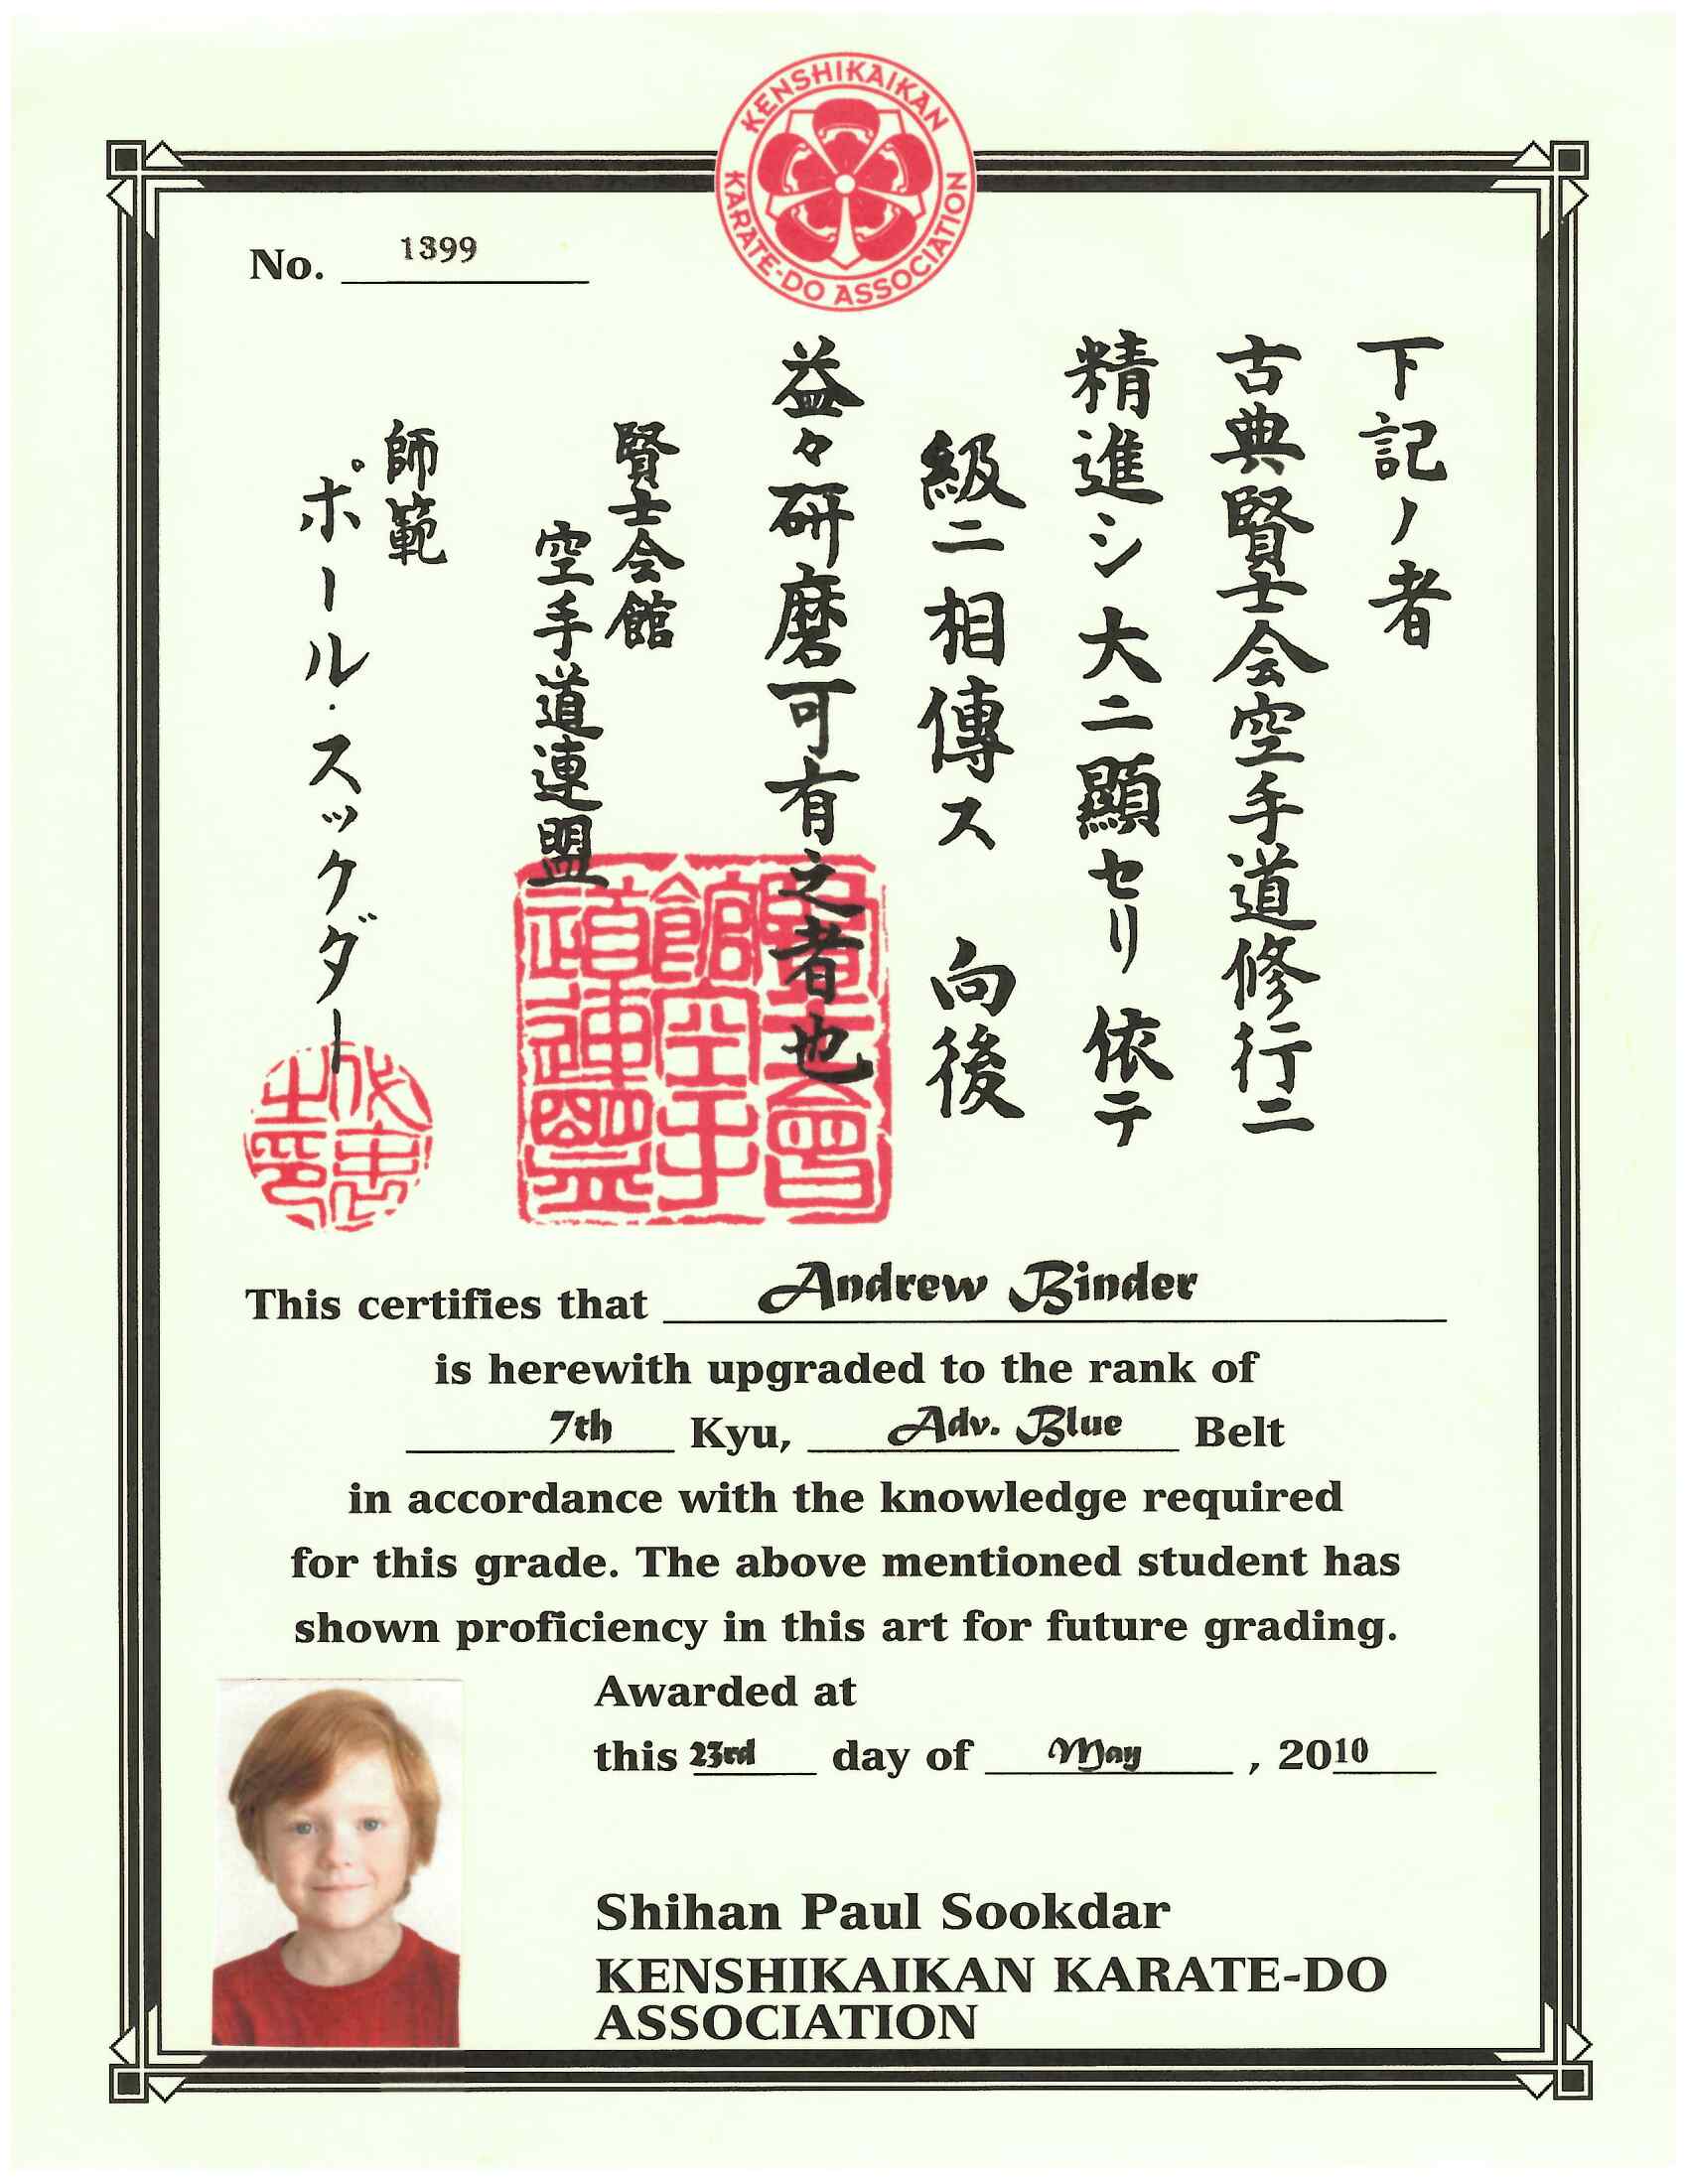 KENSHIKAIKAN
KARATE-DO ASSOCIATION
No. 1399
下記ノ者
古典賢士会空手道修行ニ
精進シ大ニ顕セリ 依テ
級ニ相傳ス 向後
益々研磨可有之者也
賢士会館
空手道連盟
師範
ポール・スックダー
賢士會館空手道連盟
This certifies that Andrew Binder
is herewith upgraded to the rank of
7th Kyu, Adv. Blue Belt
in accordance with the knowledge required
for this grade. The above mentioned student has
shown proficiency in this art for future grading.
Awarded at
this 23rd day of May, 2010
Shihan Paul Sookdar
KENSHIKAIKAN KARATE-DO
ASSOCIATION